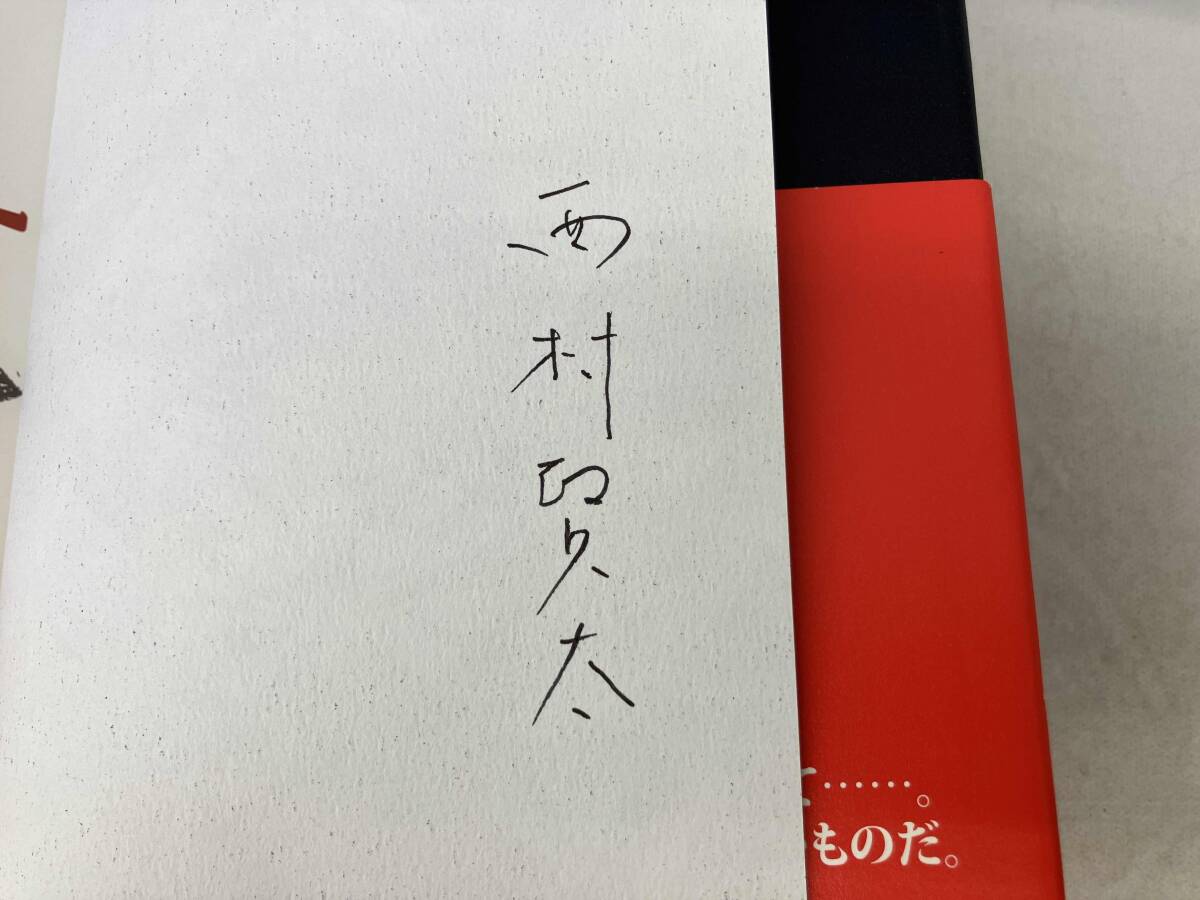 西村賢太
……。
ものだ。